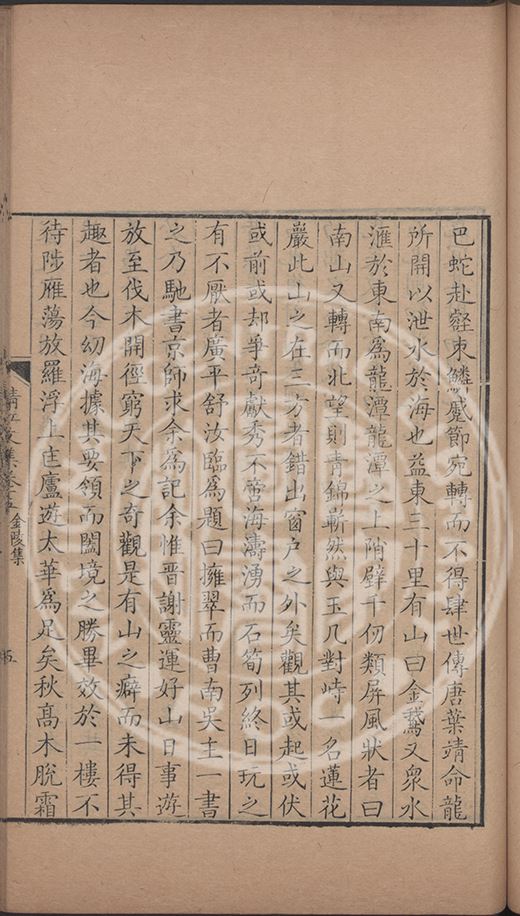 巴蛇赴壑束鱗蹙節宛轉而不得肆世傳唐葉靖命龍
所開以泄水於海也益東三十里有山曰金鵝又衆水
滙於東南爲龍潭龍潭之上陗壁千仞類屏風狀者曰
南山又轉而北望則青錦嶄然與玉几對峙一名蓮花
嚴此山之在三方者錯出窗户之外矣觀其或起或伏
或前或却爭奇獻秀不啻海濤湧而石筍列終日玩之
有不厭者廣平舒汝臨爲題曰擁翠而曹南吳主一書
之乃馳書京師求余爲記余惟晋謝靈運好山日事遊
放至伐木開徑窮天下之奇觀是有山之癖而未得其
趣者也今幼海據其要領而闔境之勝畢效於一樓不
待陟雁蕩放羅浮上匡廬遊太華爲足矣秋髙木脫霜
清江文集卷五 金陵集